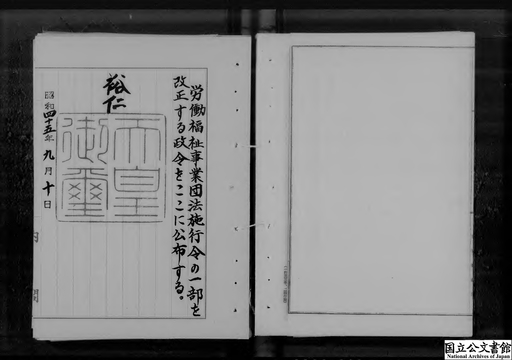 労働福祉事業団法施行令の一部を
改正する政令をここに公布する。
裕仁
天皇
御璽
昭和四十五年九月十日
国立公文書館
National Archives of Japan